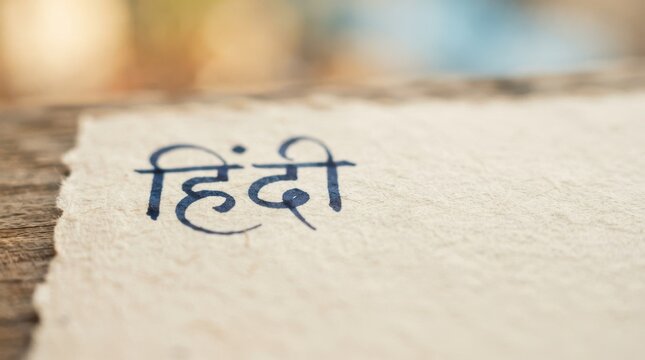 हिंदी